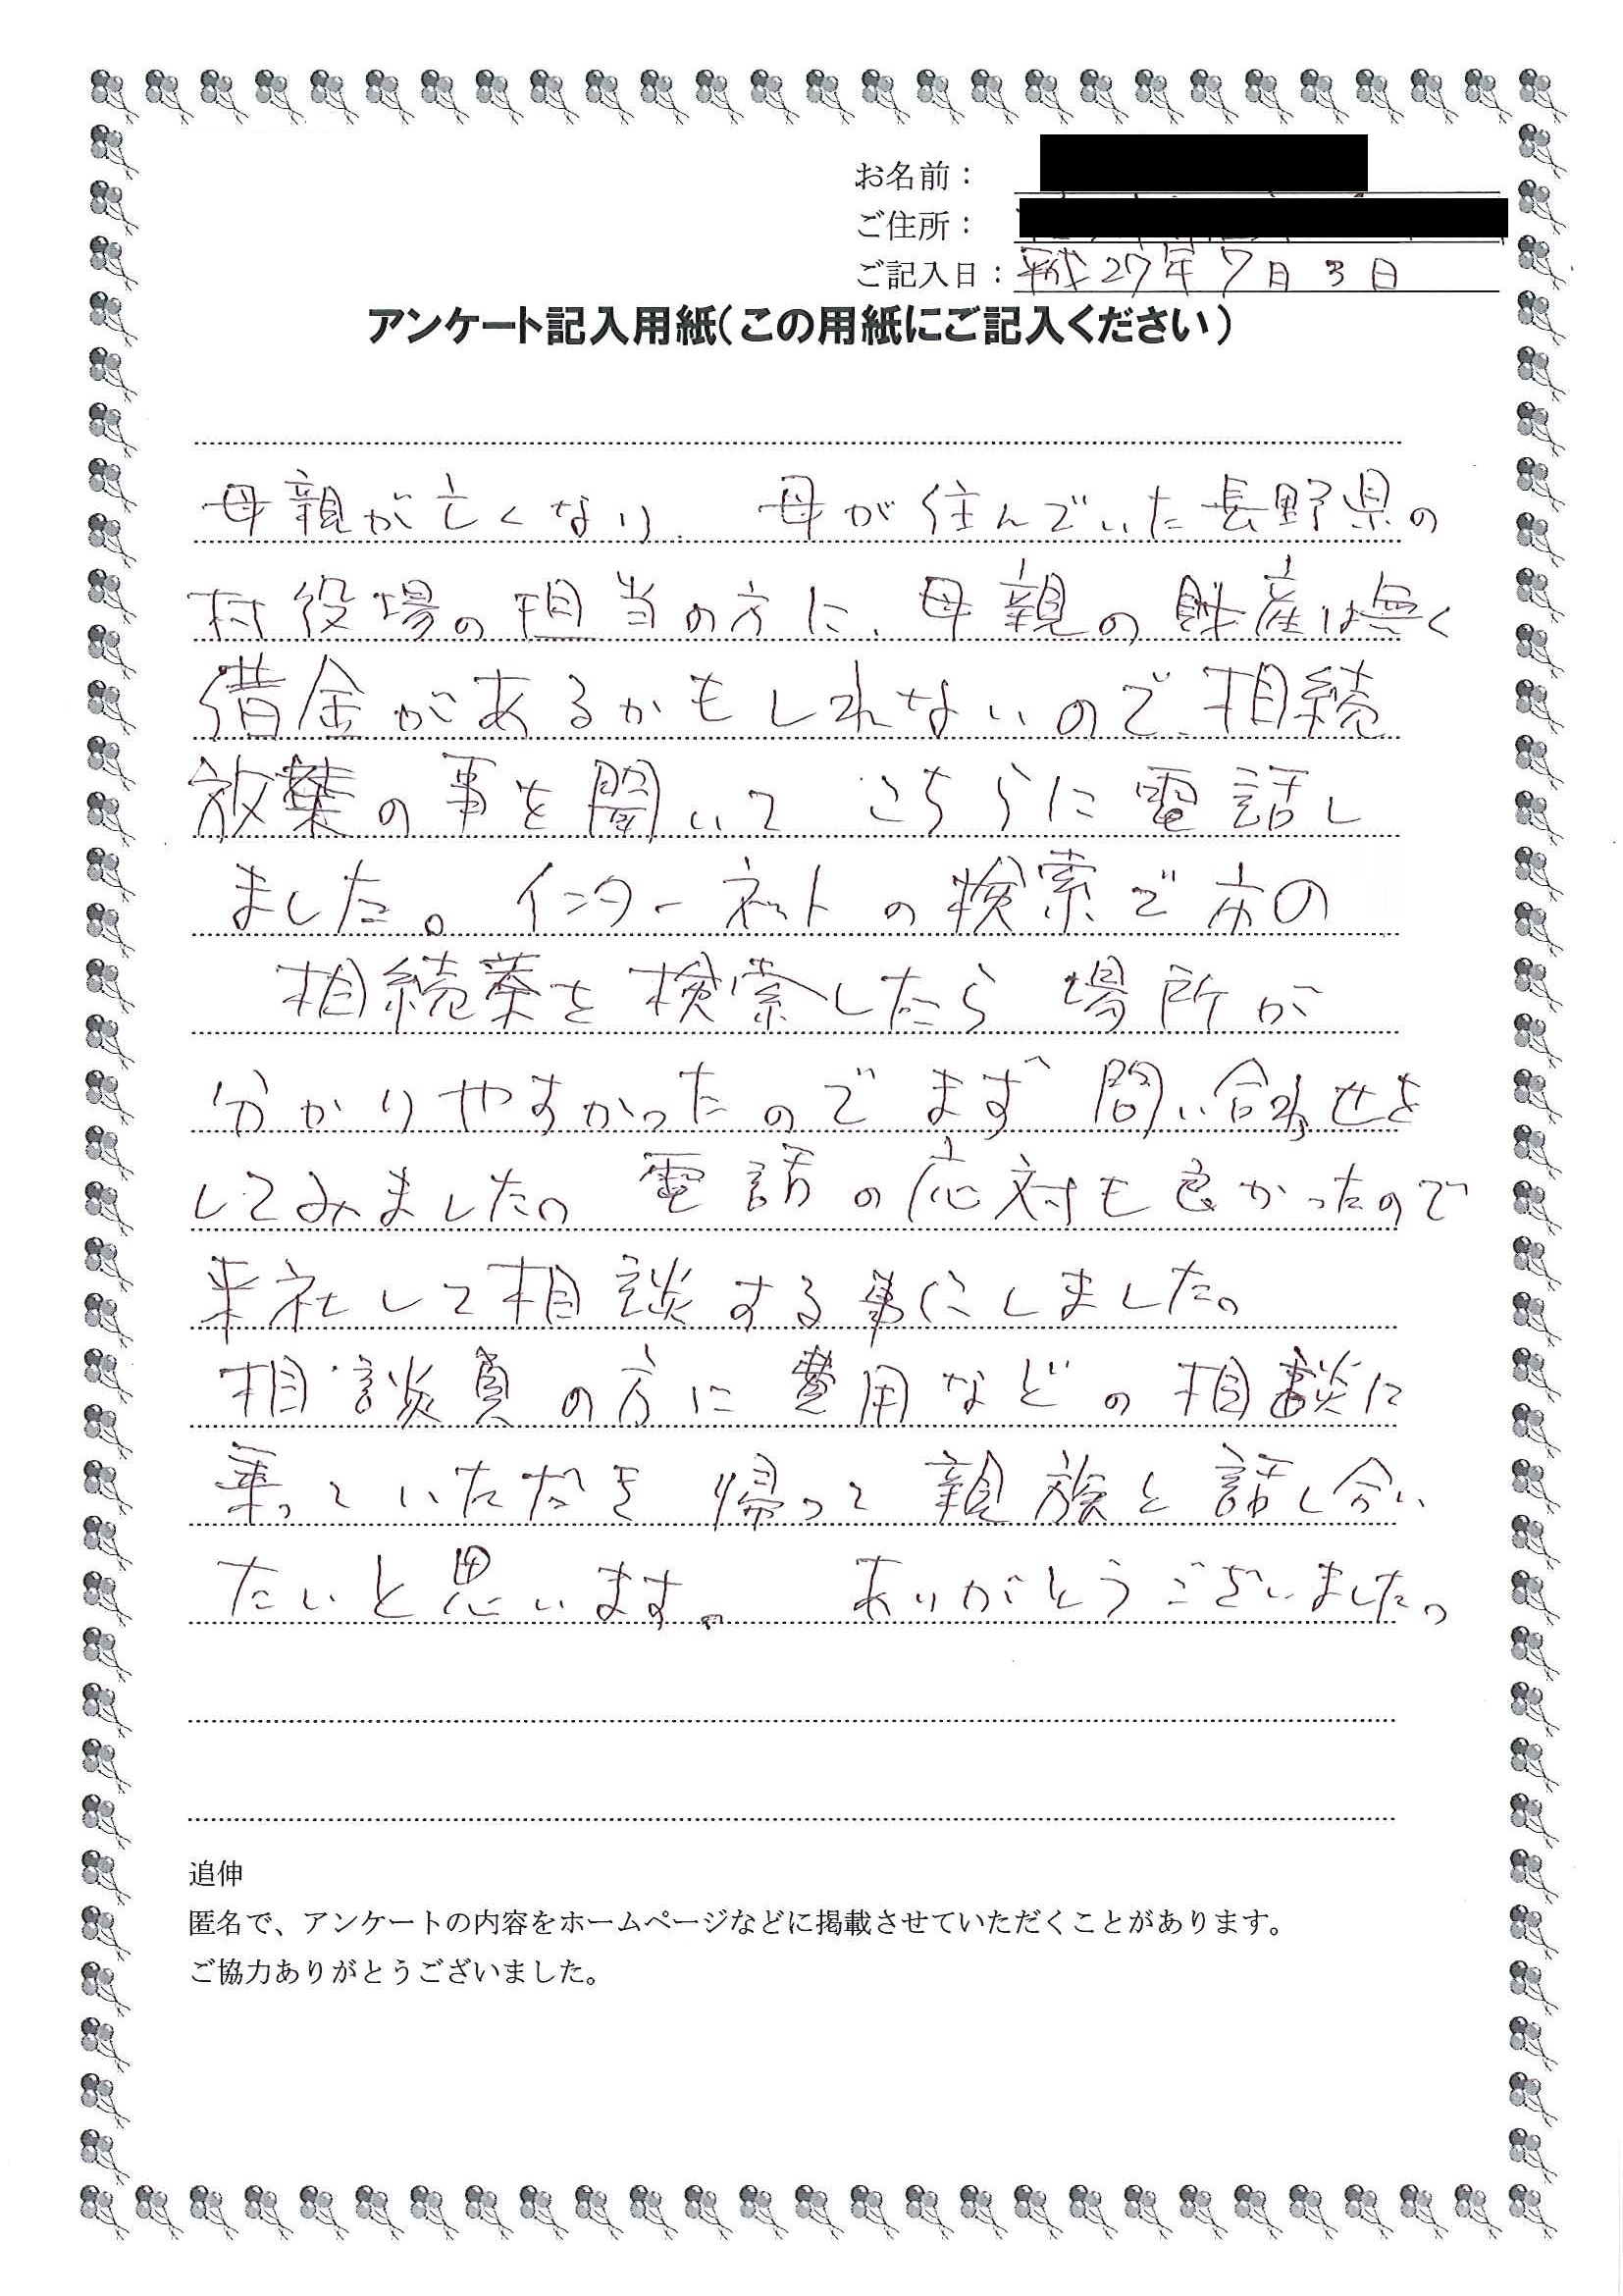 お名前：
ご住所：
ご記入日：平成27年7月3日
アンケート記入用紙（この用紙にご記入ください）
母親が亡くなり、母が住んでいた長野県の
村役場の担当の方に、母親の財産は無く
借金があるかもしれないので、相続
放棄の事を聞いて こちらに電話し
ました。インターネットの検索で市の
相続棄を検索したら 場所が
分かりやすかったので まず 問い合わせを
してみました。電話の応対も良かったので
来社して相談する事にしました。
相談員の方に費用などの相談に
乗っていただき 帰って親族と話し合い
たいと思います。 ありがとうございました。
追伸
匿名で、アンケートの内容をホームページなどに掲載させていただくことがあります。
ご協力ありがとうございました。